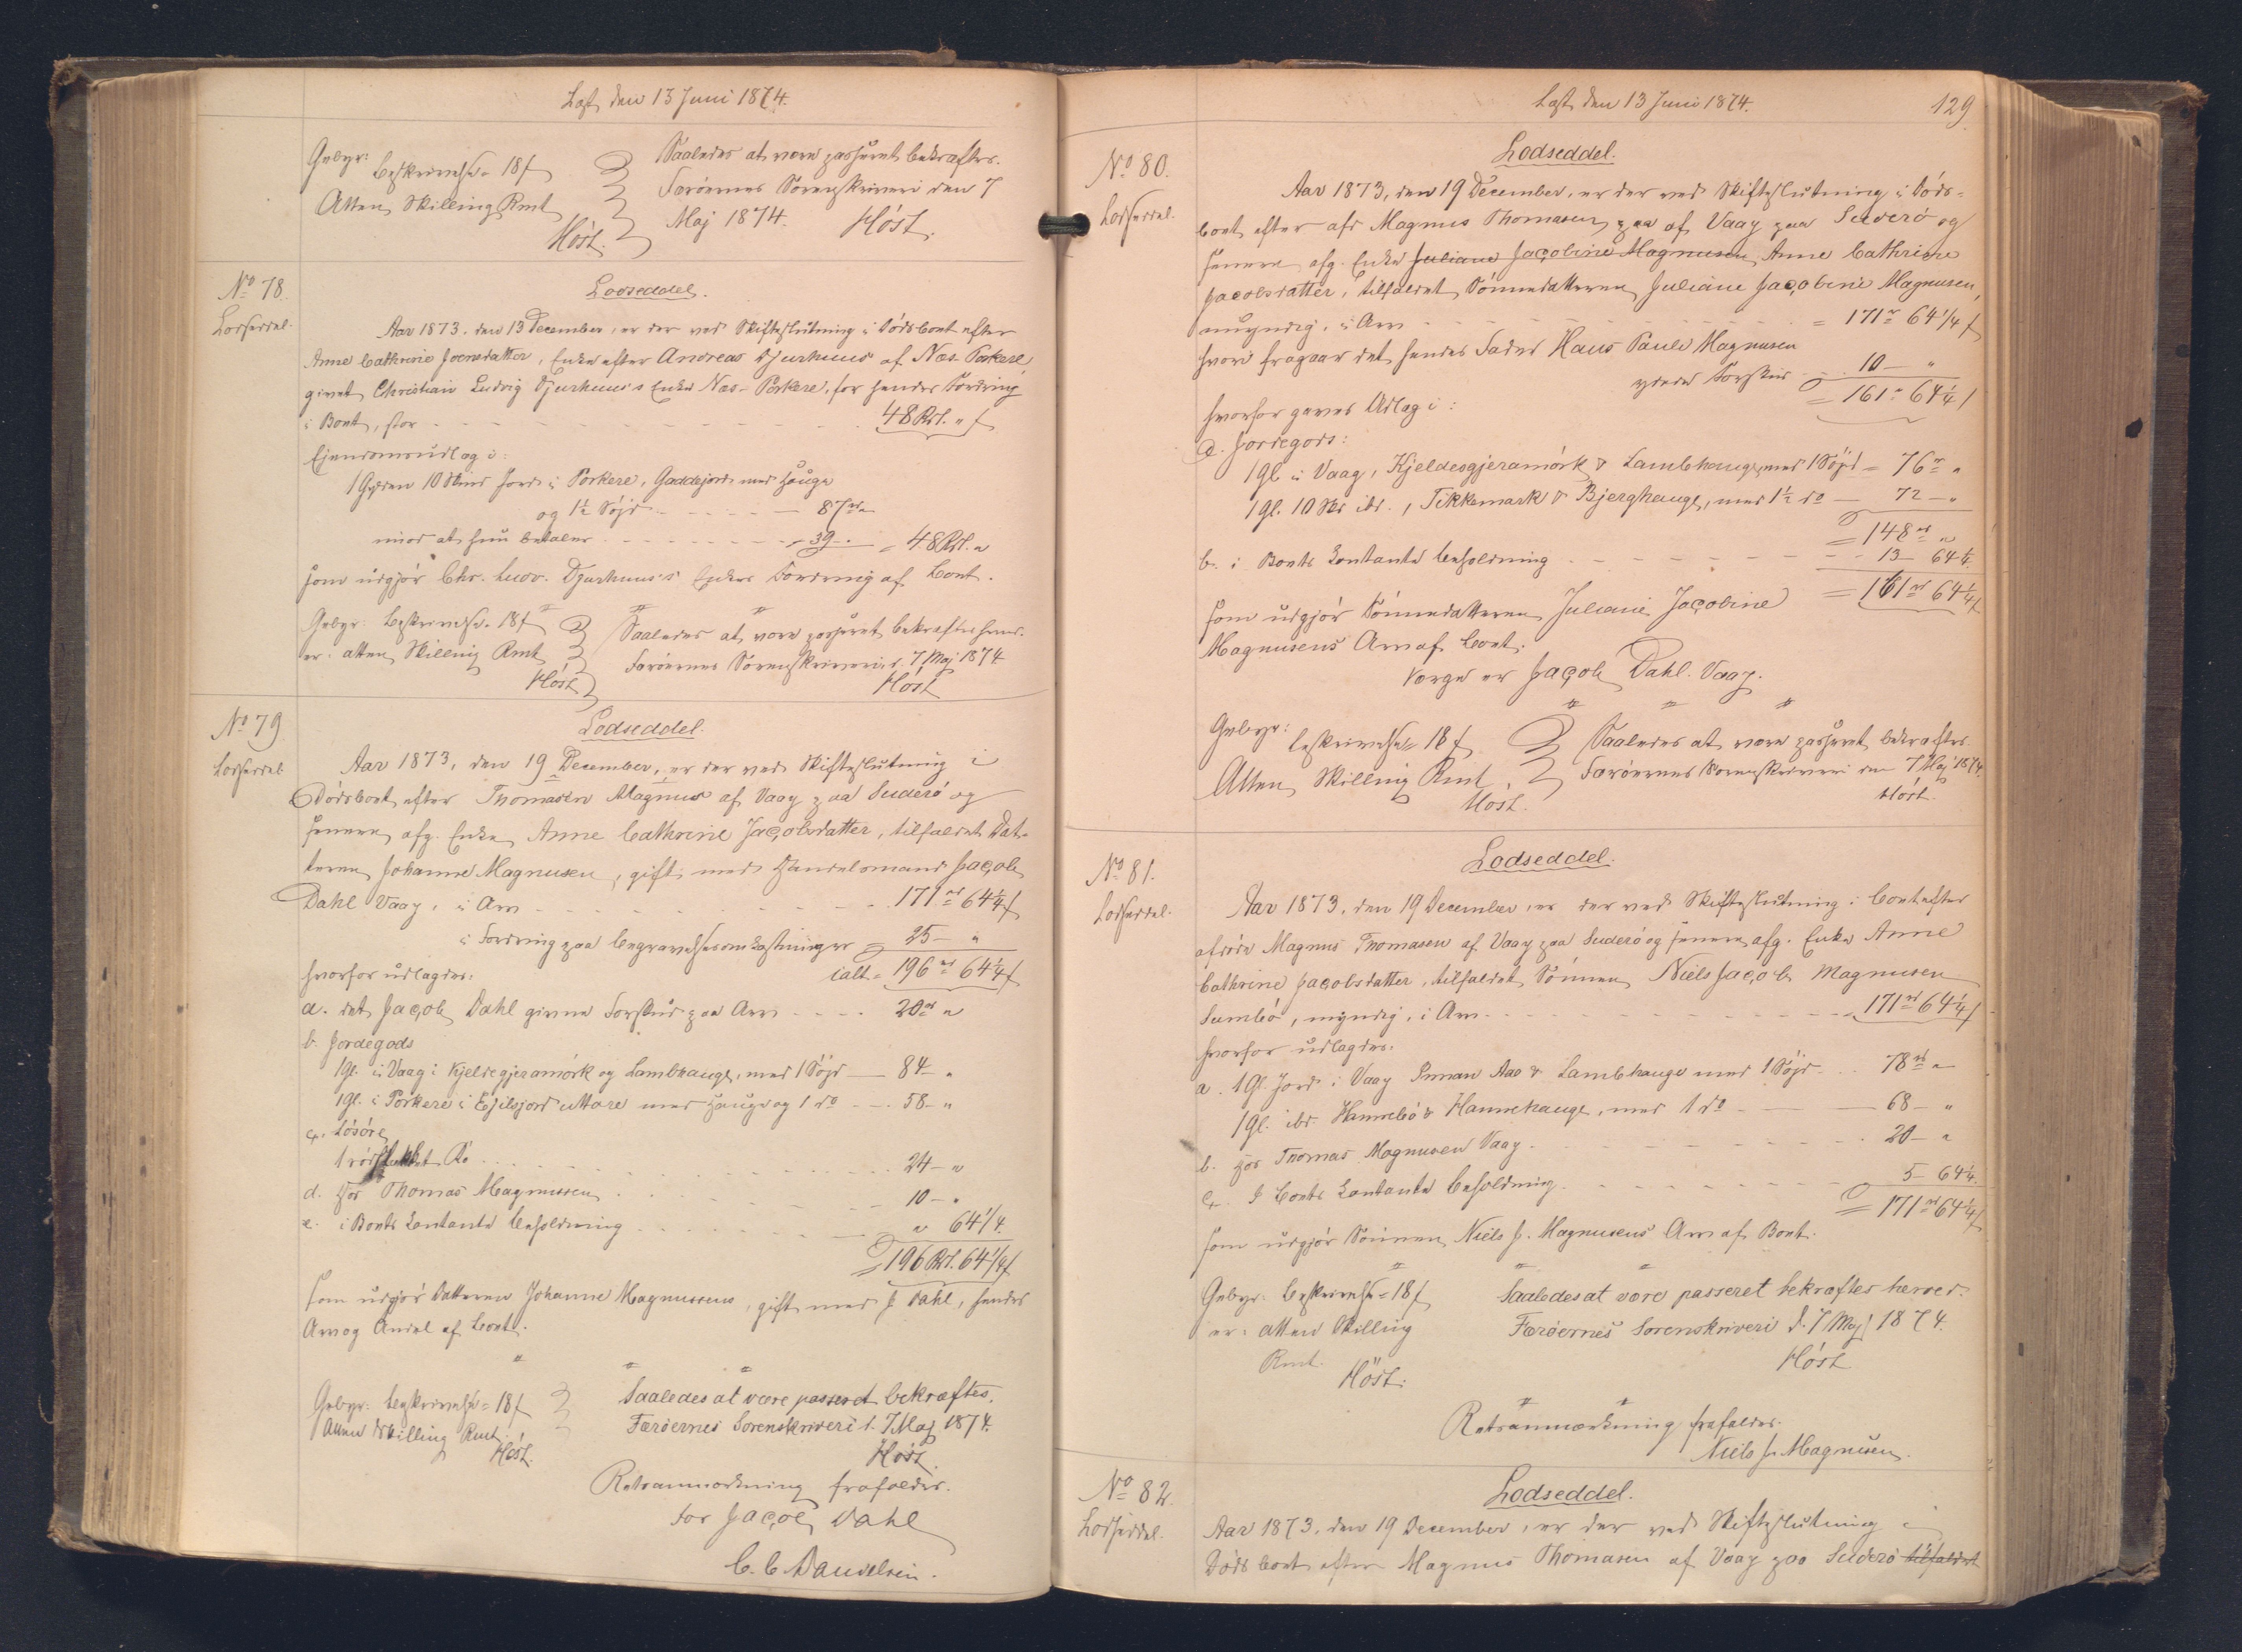 Læst den 13 Juni 1874.
Gebyr: Beskrivelse = 18 f
Atten Skilling Rmt
Höst.
Saaledes at være passeret bekræftes.
Færöernes Sorenskriveri den 7
Maj 1874. Höst.
No 78.
Lodseddel.
Lodseddel.
Aar 1873. den 13 December, er der ved Skifteslutning i Dödsboet efter
Anne Cathrine Joensdatter, Enke efter Andreas Djurhuus af Næs-Porkere,
givet Christian Ludvig Djurhuus's Enke Næs-Porkere, for hendes Fordring
i Boet, stor - - - 48 Rd. " f
Ejendomsudlæg i:
1 Gylden 10 Skind Jord i Porkere, Gaddejord med Hauge
og 1½ Söjd - - - 87 rd "
mod at hun betaler - - - 39 - " = 48 Rd. "
som udgjör Chr. Ludv. Djurhuus's Enkes Fordring af Boet.
Gebyr. Beskrivelse. 18 f
er atten Skilling Rmt
Höst
Saaledes at være passeret bekræftes herved.
Færöernes Sorenskriveri d. 7 Maj 1874
Höst
No 79.
Lodseddel
Lodseddel.
Aar 1873, den 19 December, er der ved Skifteslutning i
Dödsboet efter Thomasen Magnus af Vaag paa Suderö og
senere afg. Enke Anne Cathrine Jacobsdatter, tilfaldet Dat-
teren Johanne Magnusen, gift med Handelsmand Jacob
Dahl Vaag, i Arv - - - 171 rd 64¼ f
i Fordring paa Begravelsesomkostninger = 25 - "
hvorfor udlagdes: ialt = 196 rd 64¼ f
a. det Jacob Dahl givne Forskud paa Arv - - - 20 rd "
b. Jordegods
1 Gl. i Vaag i Kjeldegjeramörk og Lambhauge, med 1 Söjd - 84 - "
1 Gl. i Porkere i Ejilsjord uttare med Hauge og 1 do - - 58 - "
c. Lösöre
1 rödflekket Ko - - - 24 - "
d. hos Thomas Magnussen - - - 10 - "
e. i Boets kontante Beholdning - - - " 64¼.
= 196 Rd. 64¼ f
som udgjör Datteren Johanne Magnussens, gift med J. Dahl, hendes
Arv og Andel af Boet.
Gebyr: Beskrivelse = 18 f
Atten Skilling Rmt.
Höst.
Saaledes at være passeret bekræftes.
Færöernes Sorenskriveri d. 7 Maj 1874.
Höst.
Retsanmærkning frafaldes.
for Jacob Dahl
C. C. Danielsen.
Læst den 13 Juni 1874.
129
No 80.
Lodseddel.
Lodseddel.
Aar 1873, den 19 December, er der ved Skifteslutning i Döds-
boet efter afd Magnus Thomasen af Vaag paa Suderö og
senere afg. Enke Juliane Jacobine Magnusen Anne Cathrine
Jacobsdatter, tilfaldet Sönnedatteren Juliane Jacobine Magnusen,
umyndig, i Arv - - - = 171 rd 64¼ f
hvori fragaar det hendes Fader Hans Paule Magnusen
ydede Forskud - - 10 - "
= 161 rd 64¼ f
hvorfor gaves Udlæg i:
a. Jordegods:
1 Gl. i Vaag, Kjeldesgjeramörk & Lambhauge, med 1 Söjd = 76 rd "
1 Gl. 10 Sk ibd., Tikkemark & Bjerghauge, med 1½ do - 72 - "
= 148 rd "
b. i Boets kontante Beholdning - - - 13 - 64¼
= 161 rd 64¼ f
som udgjör Sönnedatteren Juliane Jacobine
Magnusens Arv af Boet.
Værge er Jacob Dahl. Vaag.
Gebyr:
Beskrivelse = 18 f
Atten Skilling Rmt.
Höst.
Saaledes at være passeret bekræftes
Færöernes Sorenskriveri den 7 Maj 1874.
Höst.
No 81.
Lodseddel.
Lodseddel.
Aar 1873, den 19 December, er der ved Skifteslutning i Boet efter
afdöde Magnus Thomasen af Vaag paa Suderö og senere afg. Enke Anne
Cathrine Jacobsdatter, tilfaldet Sönnen Niels Jacob Magnusen
Sumbö, myndig, i Arv - - - 171 rd 64¼ f
hvorfor udlagdes.
a. 1 Gl. Jord i Vaag Innan Aae & Lambhauge med 1 Söjd - 78 rd "
1 Gl. ibd. Hamrebö & Hamrehauge, med 1 do - 68 - "
b. hos Thomas Magnusen Vaag - - - 20 - "
c. I Boets kontante Beholdning - - - 5 - 64¼.
= 171 rd 64¼ f
som udgjör Sönnen Niels J. Magnusens Arv af Boet.
Gebyr. Beskrivelse = 18 f
er: atten Skilling
Rmt.
Höst.
Saaledes at være passeret bekræftes herved.
Færöernes Sorenskriveri d. 7 Maj 1874.
Höst
Retsanmærkning frafaldes.
Niels J. Magnusen.
No 82.
Lodseddel.
Lodseddel.
Aar 1873, den 19 December, er der ved Skifteslutning i
Dödsboet efter Magnus Thomasen af Vaag paa Suderö tilfaldet